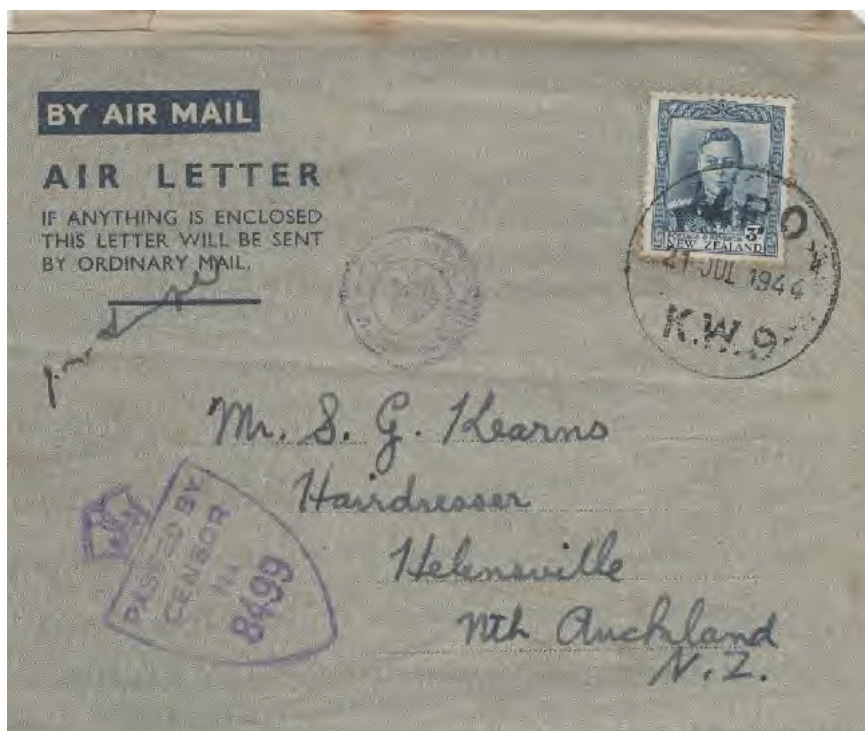 BY AIR MAIL
AIR LETTER
IF ANYTHING IS ENCLOSED
THIS LETTER WILL BE SENT
BY ORDINARY MAIL.
3d
NEW ZEALAND
21 JUL 1944
K.W.9
Mr. S. G. Kearns
Hairdresser
Helensville
Nth Auckland
N.Z.
PASSED BY
CENSOR
No.
8499